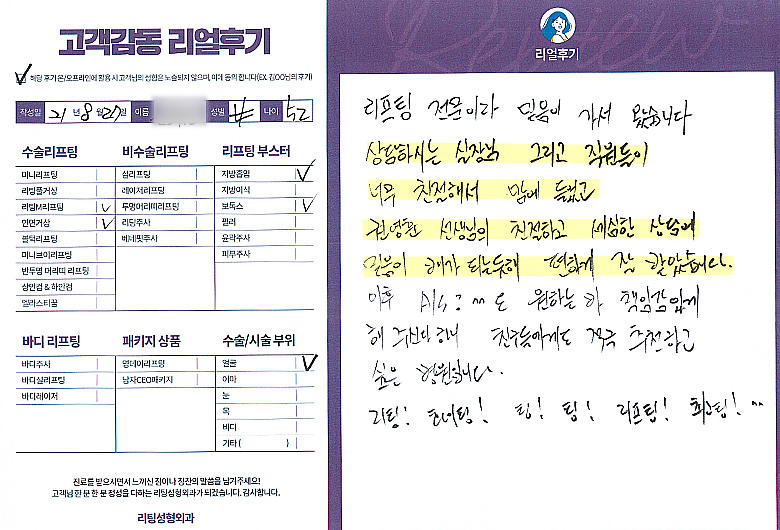 고객감동 리얼후기
해당 후기 온/오프라인에 활용 시 고객님의 성함은 노출되지 않으며, 이에 동의 합니다(EX. 김OO님의 후기)
작성일 21년 8월 27일 이름 성별 나이 52
수술리프팅
미니리프팅
리팅풀거상
리팅M리프팅
안면거상
볼턱리프팅
미니브이리프팅
반투명 머리띠 리프팅
상안검 & 하안검
엘라스티꿈
비수술리프팅
실리프팅
레이저리프팅
투명머리띠리프팅
리팅주사
베네핏주사
리프팅 부스터
지방흡입
지방이식
보톡스
필러
윤곽주사
피부주사
바디 리프팅
바디주사
바디실리프팅
바디레이저
패키지 상품
원데이리프팅
남자CEO패키지
수술/시술 부위
얼굴
이마
눈
목
바디
기타 ( )
진료를 받으시면서 느끼신 점이나 칭찬의 말씀을 남겨주세요!
고객님 한 분 한 분 정성을 다하는 리팅성형외과가 되겠습니다. 감사합니다.
리팅성형외과
Review
리얼후기
리프팅 전문이라 믿음이 가서 왔습니다
상담하시는 실장님 그리고 직원들이
너무 친절해서 맘에 들었고
권영환 선생님의 친절하고 세심한 상담에
믿음이 배가 되는듯해 편하게 잘 받았습니다.
이후 A/S도 원하는 책임감있게
해 주신다 하니 친구들에게도 적극 추천하고
싶은 병원입니다.
리팅! 팅! 팅! 리프팅! 최고팅! ^^